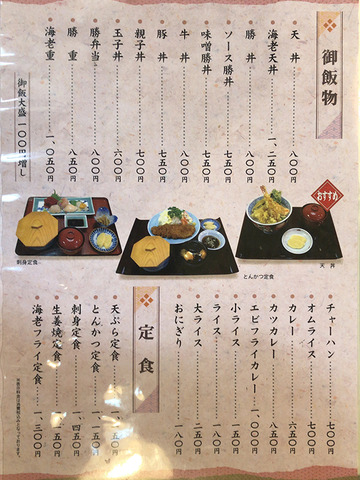 御飯物
天丼 八〇〇円
海老天丼 一、二五〇円
勝丼 八〇〇円
ソース勝丼 七五〇円
味噌勝丼 七五〇円
牛丼 八〇〇円
豚丼 七五〇円
親子丼 七〇〇円
玉子丼 六〇〇円
勝弁当 八〇〇円
勝重 八五〇円
海老重 一、〇五〇円
御飯大盛 一〇〇円増し
おすすめ
刺身定食
とんかつ定食
天丼
チャーハン 七〇〇円
オムライス 七〇〇円
カレー 六五〇円
カツカレー 八五〇円
エビフライカレー 一、〇〇〇円
小ライス 一五〇円
ライス 二〇〇円
大ライス 二五〇円
おにぎり 一八〇円
定食
天ぷら定食 一、二五〇円
とんかつ定食 一、一五〇円
刺身定食 一、四五〇円
生姜焼定食 一、一五〇円
海老フライ定食 一、三〇〇円